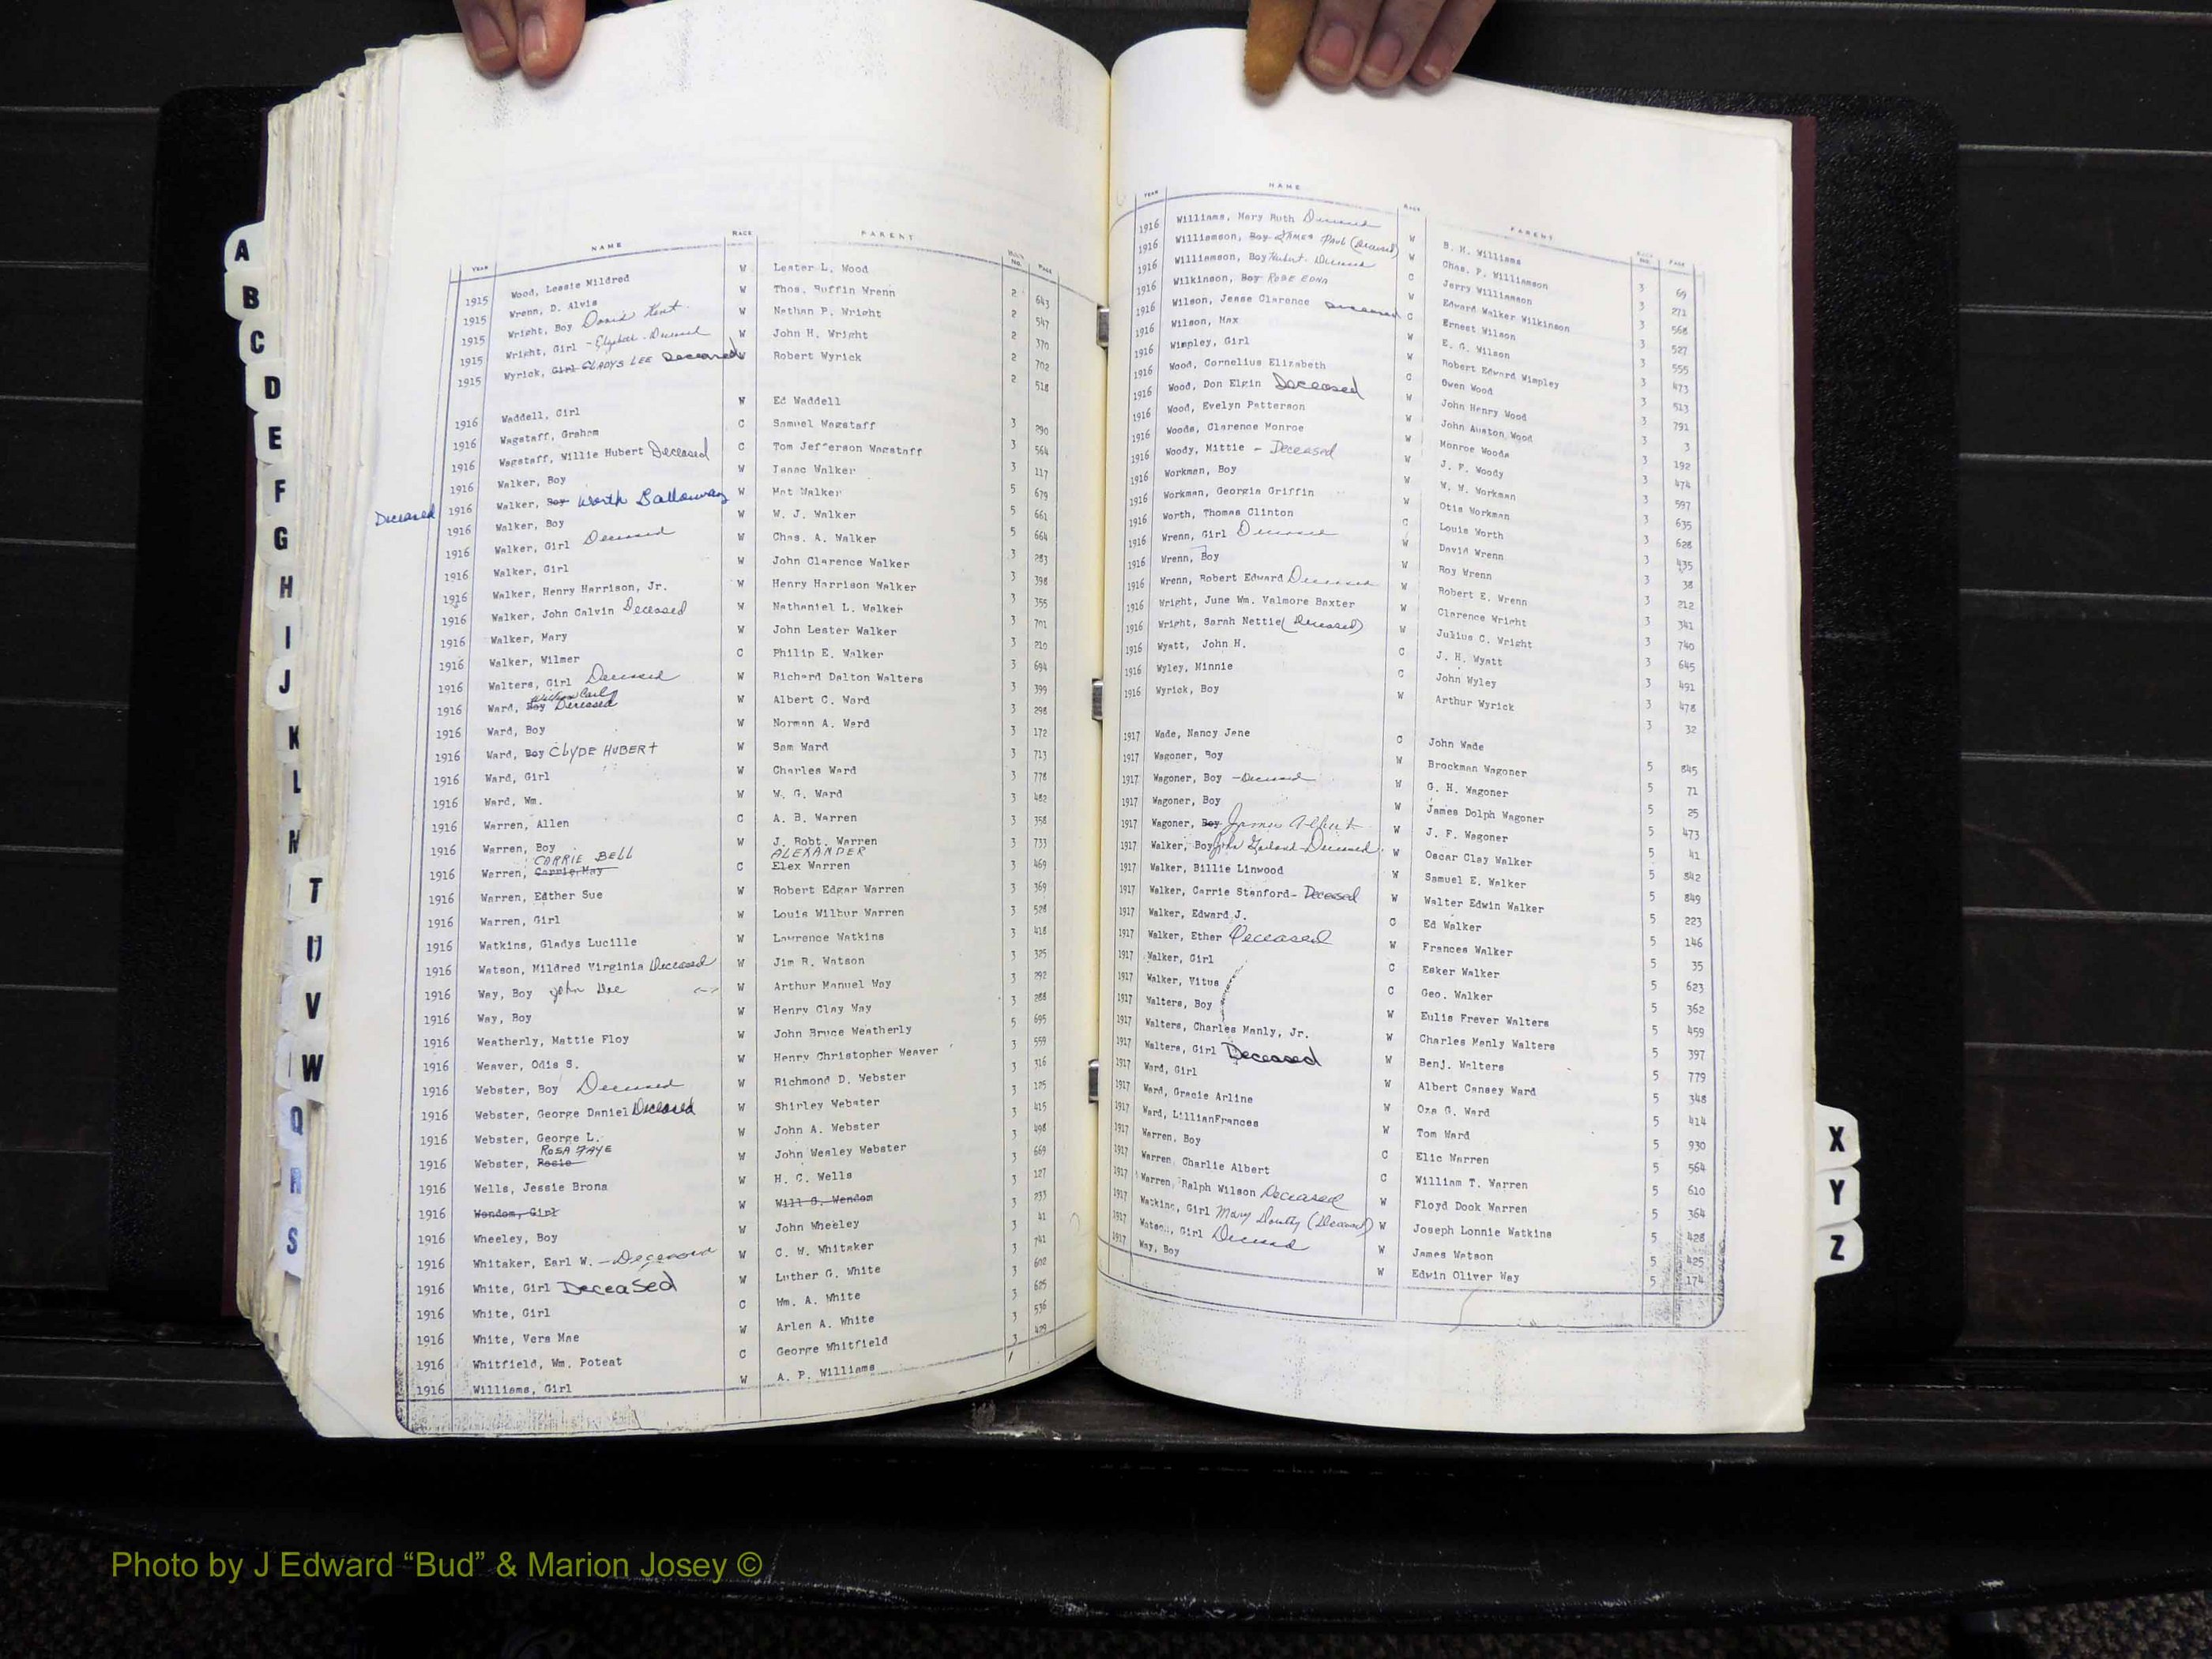 A
B
C
D
E
F
G
H
I
J
K
L
N
T
U
V
W
Q
R
S
YEAR NAME RACE PARENT BOOK NO. PAGE
1915 Wood, Lessie Mildred W Lester L. Wood 2 643
1915 Wrenn, D. Alvis W Thos. Ruffin Wrenn 2 547
1915 Wright, Boy David Kent W Nathan P. Wright 2 370
1915 Wright, Girl - Elizabeth - Deceased W John H. Wright 2 702
1915 Wyrick, Girl GLADYS LEE Deceased W Robert Wyrick 2 518
1916 Waddell, Girl W Ed Waddell 3 790
1916 Wagstaff, Graham C Samuel Wagstaff 3 564
1916 Wagstaff, Willie Hubert Deceased C Tom Jefferson Wagstaff 3 117
1916 Walker, Boy W Isaac Walker 5 679
Deceased 1916 Walker, Boy Worth Galloway W Mat Walker 5 661
1916 Walker, Boy W W. J. Walker 5 664
1916 Walker, Girl Deceased W Chas. A. Walker 3 283
1916 Walker, Girl W John Clarence Walker 3 398
1916 Walker, Henry Harrison, Jr. W Henry Harrison Walker 3 355
1916 Walker, John Calvin Deceased W Nathaniel L. Walker 3 701
1916 Walker, Mary W John Lester Walker 3 210
1916 Walker, Wilmer C Philip E. Walker 3 694
1916 Walters, Girl Deceased W Richard Dalton Walters 3 399
1916 Ward, Boy William Carl Deceased W Albert C. Ward 3 298
1916 Ward, Boy W Norman A. Ward 3 172
1916 Ward, Boy CLYDE HUBERT W Sam Ward 3 713
1916 Ward, Girl W Charles Ward 3 778
1916 Ward, Wm. W W. G. Ward 3 482
1916 Warren, Allen C A. B. Warren 3 358
1916 Warren, Boy W J. Robt. Warren 3 733
CARRIE BELL ALEXANDER
1916 Warren, Carrie May C Elex Warren 3 469
1916 Warren, Edther Sue W Robert Edgar Warren 3 369
1916 Warren, Girl W Louis Wilbur Warren 3 528
1916 Watkins, Gladys Lucille W Lawrence Watkins 3 418
1916 Watson, Mildred Virginia Deceased W Jim R. Watson 3 325
1916 Way, Boy John Doe W Arthur Manuel Way 3 292
1916 Way, Boy W Henry Clay Way 3 288
1916 Weatherly, Mattie Floy W John Bruce Weatherly 5 695
1916 Weaver, Odis S. W Henry Christopher Weaver 3 559
1916 Webster, Boy Deceased W Richmond D. Webster 3 316
1916 Webster, George Daniel Deceased W Shirley Webster 3 125
1916 Webster, George L. W John A. Webster 3 415
ROSA FAYE
1916 Webster, Rosie W John Wesley Webster 3 498
1916 Wells, Jessie Brona W H. C. Wells 3 669
1916 Wendom, Girl W Will G. Wendom 3 127
1916 Wheeley, Boy W John Wheeley 3 233
1916 Whitaker, Earl W. - Deceased W C. W. Whitaker 3 41
1916 White, Girl Deceased W Luther G. White 3 741
1916 White, Girl C Wm. A. White 3 602
1916 White, Vera Mae W Arlen A. White 3 625
1916 Whitfield, Wm. Poteat C George Whitfield 3 536
1916 Williams, Girl W A. P. Williams 3 429
YEAR NAME RACE PARENT PAGE
1916 Williams, Mary Ruth Deceased W B. H. Williams 3 69
1916 Williamson, Boy JAMES Paul (Deceased) W Chas. P. Williamson 3 271
1916 Williamson, Boy Hubert. Deceased C Jerry Williamson 3 568
1916 Wilkinson, Boy ROBE EDNA W Edward Walker Wilkinson 3 527
1916 Wilson, Jesse Clarence Deceased C Ernest Wilson 3 555
1916 Wilson, Max W E. G. Wilson 3 473
1916 Wimpley, Girl W Robert Edward Wimpley 3 513
1916 Wood, Cornelius Elizabeth C Owen Wood 3 791
1916 Wood, Don Elgin Deceased W John Henry Wood 3 3
1916 Wood, Evelyn Patterson W John Auston Wood 3 192
1916 Woods, Clarence Monroe W Monroe Woods 3 474
1916 Woody, Mittie - Deceased W J. F. Woody 3 597
1916 Workman, Boy W W. W. Workman 3 635
1916 Workman, Georgia Griffin W Otis Workman 3 628
1916 Worth, Thomas Clinton C Louis Worth 3 435
1916 Wrenn, Girl Deceased W David Wrenn 3 38
1916 Wrenn, Boy W Roy Wrenn 3 212
1916 Wrenn, Robert Edward Deceased W Robert E. Wrenn 3 341
1916 Wright, June Wm. Valmore Baxter W Clarence Wright 3 740
1916 Wright, Sarah Nettie (Deceased) W Julius C. Wright 3 645
1916 Wyatt, John H. C J. H. Wyatt 3 491
1916 Wyley, Minnie C John Wyley 3 478
1916 Wyrick, Boy W Arthur Wyrick 3 32
1917 Wade, Nancy Jane C John Wade 5 845
1917 Wagoner, Boy W Brockman Wagoner 5 71
1917 Wagoner, Boy - Deceased W G. H. Wagoner 5 25
1917 Wagoner, Boy W James Dolph Wagoner 5 473
1917 Wagoner, Boy James Albert W J. F. Wagoner 5 41
1917 Walker, Boy John Garland Deceased W Oscar Clay Walker 5 842
1917 Walker, Billie Linwood W Samuel E. Walker 5 849
1917 Walker, Carrie Stanford - Deceased W Walter Edwin Walker 5 223
1917 Walker, Edward J. C Ed Walker 5 146
1917 Walker, Ether Deceased W Frances Walker 5 35
1917 Walker, Girl C Esker Walker 5 623
1917 Walker, Vitus C Geo. Walker 5 362
1917 Walters, Boy W Eulis Frever Walters 5 459
1917 Walters, Charles Manly, Jr. W Charles Manly Walters 5 397
1917 Walters, Girl Deceased W Benj. Walters 5 779
1917 Ward, Girl W Albert Cansey Ward 5 348
1917 Ward, Gracie Arline W Oza G. Ward 5 414
1917 Ward, LillianFrances W Tom Ward 5 930
1917 Warren, Boy C Elic Warren 5 564
1917 Warren, Charlie Albert C William T. Warren 5 610
1917 Warren, Ralph Wilson Deceased W Floyd Dook Warren 5 364
1917 Watkins, Girl Mary Douty (Deceased) W Joseph Lonnie Watkins 5 428
1917 Watson, Girl Deceased W James Watson 5 425
1917 Way, Boy W Edwin Oliver Way 5 174
X
Y
Z
Photo by J Edward “Bud” & Marion Josey ©